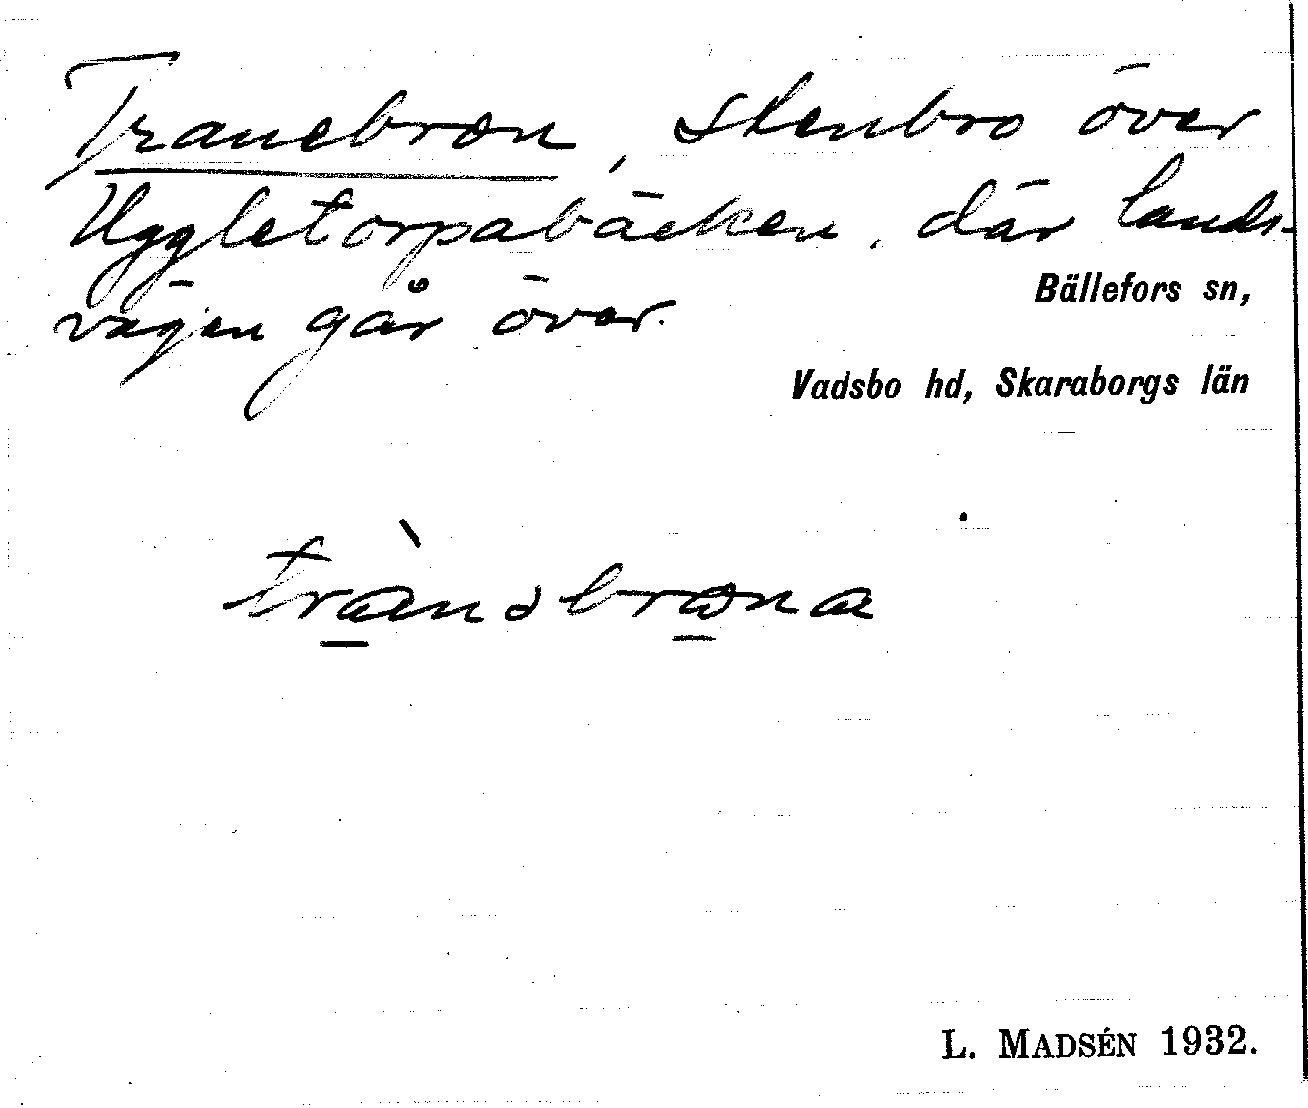 Tranebron, stenbro över
Uggletorpabäcken, där lands-
vägen går över.
Bällefors sn,
Vadsbo hd, Skaraborgs län
L. MADSÉN 1932.